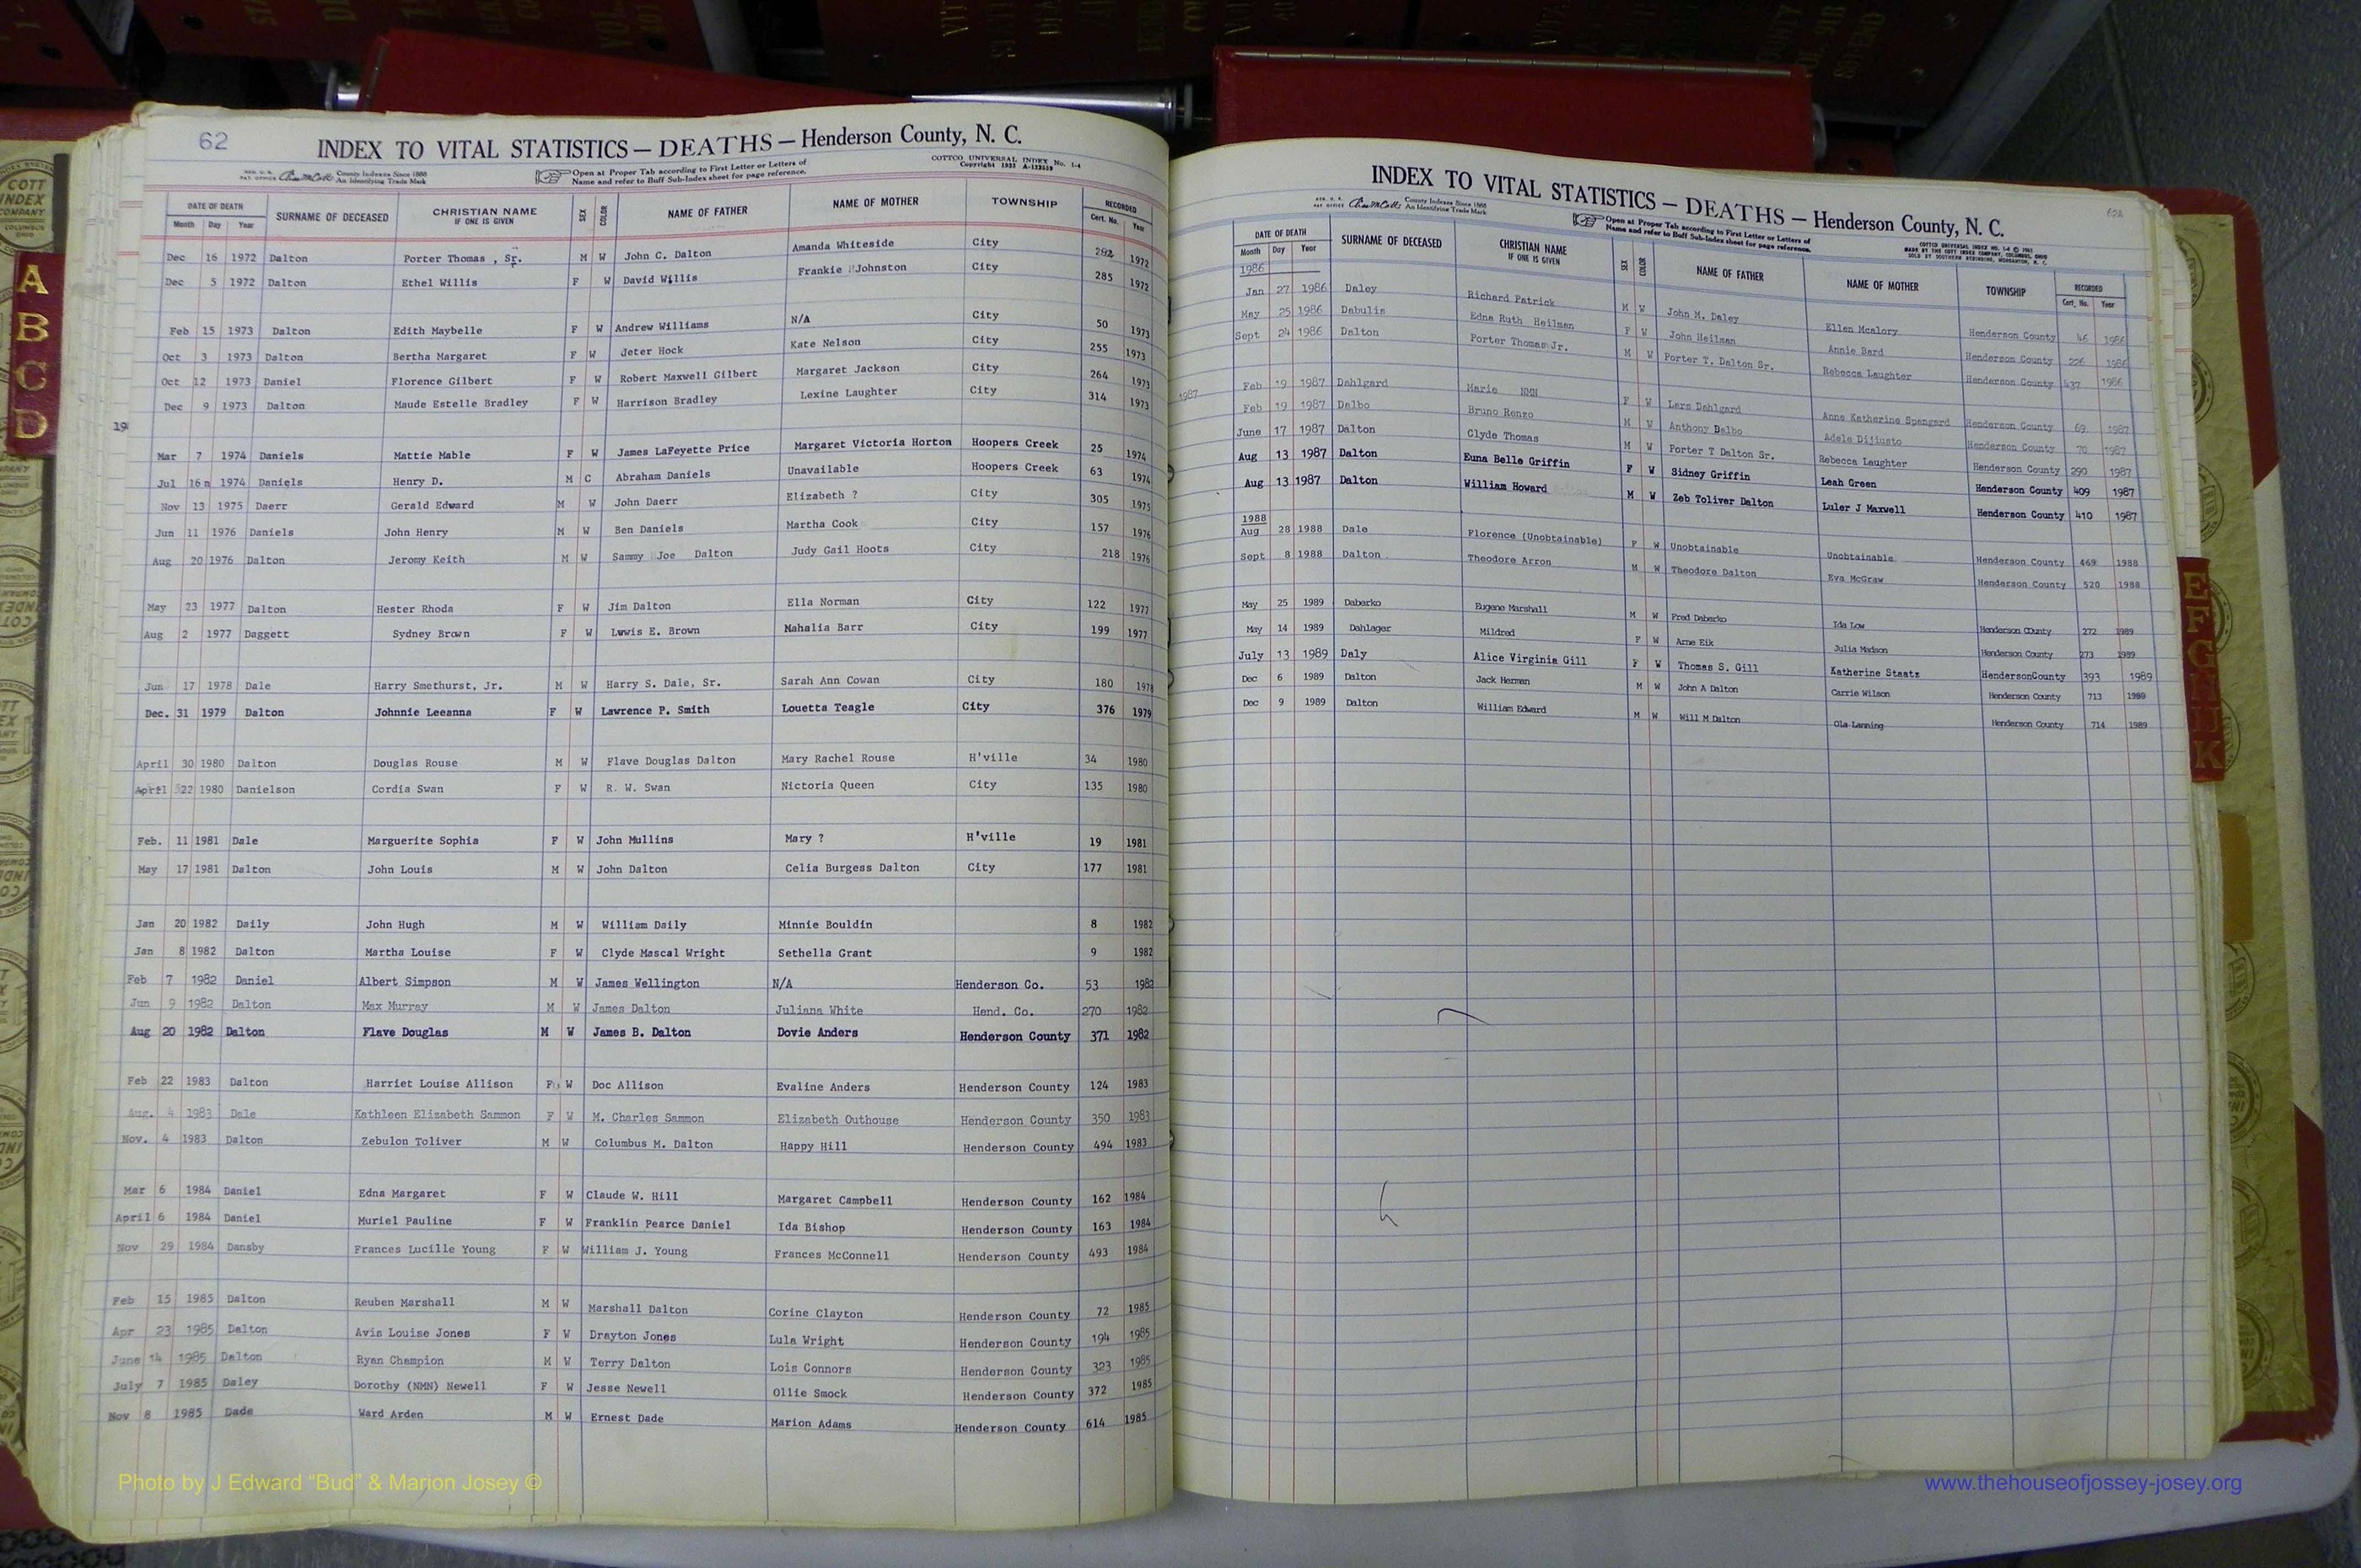 62
INDEX TO VITAL STATISTICS — DEATHS — Henderson County, N. C.
COTTCO UNIVERSAL INDEX No. 1-4
Copyright 1933 A-122519
REG. U. S. PAT. OFFICE County Indexes Since 1888 An Identifying Trade Mark
Open at Proper Tab according to First Letter or Letters of
Name and refer to Buff Sub-Index sheet for page reference.
DATE OF DEATH SURNAME OF DECEASED CHRISTIAN NAME IF ONE IS GIVEN SEX COLOR NAME OF FATHER NAME OF MOTHER TOWNSHIP RECORDED
Month Day Year Cert. No. Year
Dec 16 1972 Dalton Porter Thomas , Sr. M W John C. Dalton Amanda Whiteside City 282 1972
Dec 5 1972 Dalton Ethel Willis F W David Willis Frankie Johnston City 285 1972
Feb 15 1973 Dalton Edith Maybelle F W Andrew Williams N/A City 50 1973
Oct 3 1973 Dalton Bertha Margaret F W Jeter Hock Kate Nelson City 255 1973
Oct 12 1973 Daniel Florence Gilbert F W Robert Maxwell Gilbert Margaret Jackson City 264 1973
Dec 9 1973 Dalton Maude Estelle Bradley F W Harrison Bradley Lexine Laughter City 314 1973
19
Mar 7 1974 Daniels Mattie Mable F W James LaFeyette Price Margaret Victoria Horton Hoopers Creek 25 1974
Jul 16 1974 Daniels Henry D. M C Abraham Daniels Unavailable Hoopers Creek 63 1974
Nov 13 1975 Daerr Gerald Edward M W John Daerr Elizabeth ? City 305 1975
Jun 11 1976 Daniels John Henry M W Ben Daniels Martha Cook City 157 1976
Aug 20 1976 Dalton Jeromy Keith M W Sammy Joe Dalton Judy Gail Hoots City 218 1976
May 23 1977 Dalton Hester Rhoda F W Jim Dalton Ella Norman City 122 1977
Aug 2 1977 Daggett Sydney Brown F W Lwwis E. Brown Mahalia Barr City 199 1977
Jun 17 1978 Dale Harry Smethurst, Jr. M W Harry S. Dale, Sr. Sarah Ann Cowan City 180 1978
Dec. 31 1979 Dalton Johnnie Leeanna F W Lawrence P. Smith Louetta Teagle City 376 1979
April 30 1980 Dalton Douglas Rouse M W Flave Douglas Dalton Mary Rachel Rouse H'ville 34 1980
April 22 1980 Danielson Cordia Swan F W R. W. Swan Nictoria Queen City 135 1980
Feb. 11 1981 Dale Marguerite Sophia F W John Mullins Mary ? H'ville 19 1981
May 17 1981 Dalton John Louis M W John Dalton Celia Burgess Dalton City 177 1981
Jan 20 1982 Daily John Hugh M W William Daily Minnie Bouldin 8 1982
Jan 8 1982 Dalton Martha Louise F W Clyde Mascal Wright Sethella Grant 9 1982
Feb 7 1982 Daniel Albert Simpson M W James Wellington N/A Henderson Co. 53 1982
Jun 9 1982 Dalton Max Murray M W James Dalton Juliana White Hend. Co. 270 1982
Aug 20 1982 Dalton Flave Douglas M W James B. Dalton Dovie Anders Henderson County 371 1982
Feb 22 1983 Dalton Harriet Louise Allison F W Doc Allison Evaline Anders Henderson County 124 1983
Aug. 4 1983 Dale Kathleen Elizabeth Sammon F W M. Charles Sammon Elizabeth Outhouse Henderson County 350 1983
Nov. 4 1983 Dalton Zebulon Toliver M W Columbus M. Dalton Happy Hill Henderson County 494 1983
Mar 6 1984 Daniel Edna Margaret F W Claude W. Hill Margaret Campbell Henderson County 162 1984
April 6 1984 Daniel Muriel Pauline F W Franklin Pearce Daniel Ida Bishop Henderson County 163 1984
Nov 29 1984 Dansby Frances Lucille Young F W William J. Young Frances McConnell Henderson County 493 1984
Feb 15 1985 Dalton Reuben Marshall M W Marshall Dalton Corine Clayton Henderson County 72 1985
Apr 23 1985 Dalton Avis Louise Jones F W Drayton Jones Lula Wright Henderson County 194 1985
June 14 1985 Dalton Ryan Champion M W Terry Dalton Lois Connors Henderson County 323 1985
July 7 1985 Daley Dorothy (NMN) Newell F W Jesse Newell Ollie Smock Henderson County 372 1985
Nov 8 1985 Dade Ward Arden M W Ernest Dade Marion Adams Henderson County 614 1985
INDEX TO VITAL STATISTICS — DEATHS — Henderson County, N. C.
62A
County Indexes Since 1888 An Identifying Trade Mark
Open at Proper Tab according to First Letter or Letters of
Name and refer to Buff Sub-Index sheet for page reference.
DATE OF DEATH SURNAME OF DECEASED CHRISTIAN NAME IF ONE IS GIVEN SEX COLOR NAME OF FATHER NAME OF MOTHER TOWNSHIP RECORDED
Month Day Year Cert. No. Year
1986
Jan 27 1986 Daley Richard Patrick M W John M. Daley Ellen Mcalory Henderson County 46 1986
May 25 1986 Dabulis Edna Ruth Heilman F W John Heilman Annie Bard Henderson County 226 1986
Sept 24 1986 Dalton Porter Thomas Jr. M W Porter T. Dalton Sr. Rebecca Laughter Henderson County 437 1986
1987
Feb 19 1987 Dahlgard Marie NMN F W Lars Dahlgard Anne Katherine Spangard Henderson County 69 1987
Feb 19 1987 Dalbo Bruno Renzo M W Anthony Dalbo Adele Dijiusto Henderson County 70 1987
June 17 1987 Dalton Clyde Thomas M W Porter T Dalton Sr. Rebecca Laughter Henderson County 290 1987
Aug 13 1987 Dalton Euna Belle Griffin F W Sidney Griffin Leah Green Henderson County 409 1987
Aug 13 1987 Dalton William Howard M W Zeb Toliver Dalton Luler J Maxwell Henderson County 410 1987
1988
Aug 28 1988 Dale Florence (Unobtainable) F W Unobtainable Unobtainable Henderson County 469 1988
Sept 8 1988 Dalton Theodore Arron M W Theodore Dalton Eva McGraw Henderson County 520 1988
May 25 1989 Daberko Eugene Marshall M W Fred Daberko Ida Low Henderson COunty 272 1989
May 14 1989 Dahlager Mildred F W Arne Eik Julia Madson Henderson County 273 1989
July 13 1989 Daly Alice Virginia Gill F W Thomas S. Gill Katherine Staats HendersonCounty 393 1989
Dec 6 1989 Dalton Jack Herman M W John A Dalton Carrie Wilson Henderson County 713 1989
Dec 9 1989 Dalton William Edward M W Will M Dalton Ola Lanning Henderson County 714 1989
A
B
C
D
E
F
G
K
COTT
INDEX
COMPANY
COLUMBUS
OHIO
Photo by J Edward “Bud” & Marion Josey ©
www.thehouseofjossey-josey.org